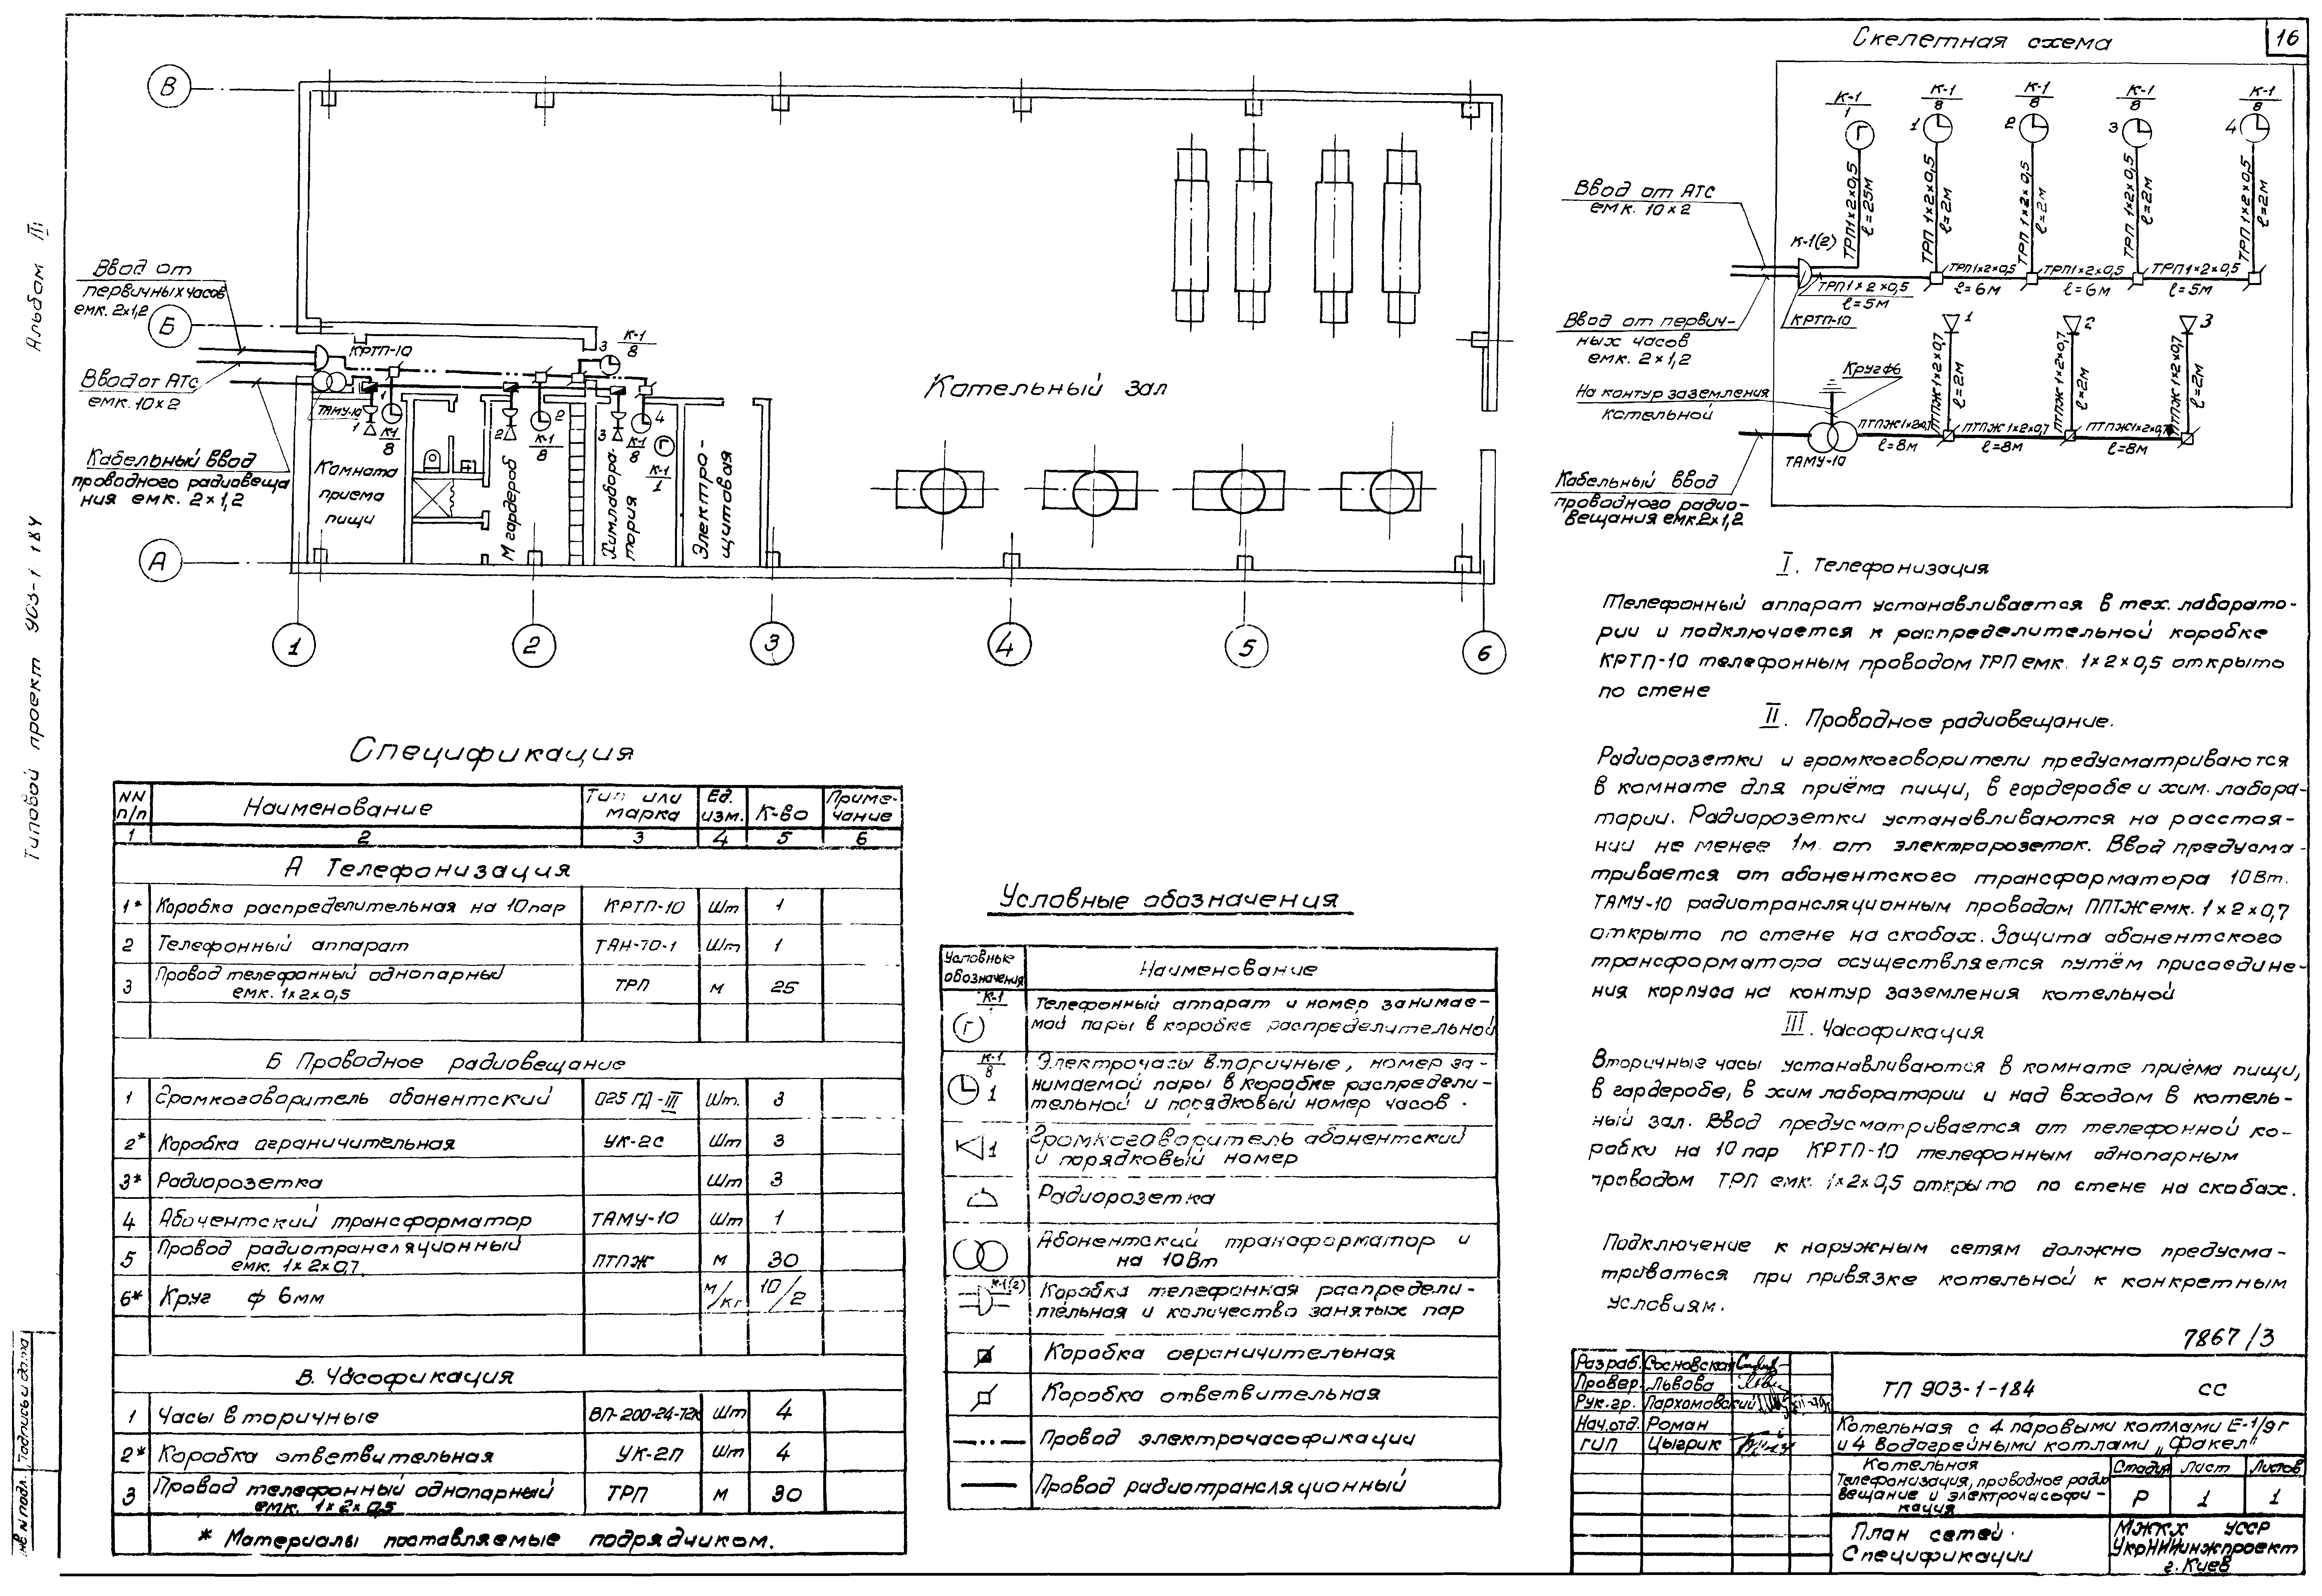 Альбом III
Типовой проект 903-1 184
Подпись и дата
16
В
Б
А
Ввод от
первичных часов
емк. 2×1,2
Ввод от АТС
емк. 10×2
Кабельный ввод
проводного радиовеща
ния емк. 2×1,2
КРТП-10
ТАМУ-10
3
К-1
8
1
К-1
8
1
2
К-1
8
2
3
К-1
8
4
Г
К-1
1
Комната
приема
пищи
М гардероб
Химлабора-
тория
Электро-
щитовая
Котельный зал
1
2
3
4
5
6
Скелетная схема
К-1
1
Г
К-1
8
1
К-1
8
2
К-1
8
3
К-1
8
4
ТРП 1×2×0,5
ℓ=25м
ТРП 1×2×0,5
ℓ=2м
ТРП 1×2×0,5
ℓ=2м
ТРП 1×2×0,5
ℓ=2м
ТРП 1×2×0,5
ℓ=2м
Ввод от АТС
емк. 10×2
К-1(2)
ТРП 1×2×0,5
ℓ=5м
ТРП 1×2×0,5
ℓ=6м
ТРП 1×2×0,5
ℓ=6м
ТРП 1×2×0,5
ℓ=5м
КРТП-10
Ввод от первич-
ных часов
емк. 2×1,2
1
2
3
ПТПЖ 1×2×0,7
ℓ=2м
ПТПЖ 1×2×0,7
ℓ=2м
ПТПЖ 1×2×0,7
ℓ=2м
Круг ф6
На контур заземления
котельной
ТАМУ-10
ПТПЖ 1×2×0,7
ℓ=8м
ПТПЖ 1×2×0,7
ℓ=8м
ПТПЖ 1×2×0,7
ℓ=8м
Кабельный ввод
проводного радио-
вещания емк. 2×1,2
I. Телефонизация
Телефонный аппарат устанавливается в тех. лаборато-
рии и подключается к распределительной коробке
КРТП-10 телефонным проводом ТРП емк. 1×2×0,5 открыто
по стене
II. Проводное радиовещание.
Радиорозетки и громкоговорители предусматриваются
в комнате для приёма пищи, в гардеробе и хим. лабора-
тории. Радиорозетки устанавливаются на расстоя-
нии не менее 1м. от электророзеток. Ввод предусма-
тривается от абонентского трансформатора 10Вт.
ТАМУ-10 радиотрансляционным проводом ППТЖ емк. 1×2×0,7
открыто по стене на скобах. Защита абонентского
трансформатора осуществляется путём присоедине-
ния корпуса на контур заземления котельной
III. Часофикация
Вторичные часы устанавливаются в комнате приёма пищи,
в гардеробе, в хим лаборатории и над входом в котель-
ный зал. Ввод предусматривается от телефонной ко-
робки на 10 пар КРТП-10 телефонным однопарным
проводом ТРП емк. 1×2×0,5 открыто по стене на скобах.
Подключение к наружным сетям должно предусма-
триваться при привязке котельной к конкретным
условиям.
Спецификация
NN п/п
Наименование
Тип или марка
Ед. изм.
К-во
Приме-чание
1 2 3 4 5 6
А Телефонизация
1* Коробка распределительная на 10 пар КРТП-10 Шт 1
2 Телефонный аппарат ТАН-70-1 Шт 1
3 Провод телефонный однопарный
емк. 1×2×0,5 ТРП м 25
Б Проводное радиовещание
1 Громкоговоритель абонентский 025 ГД-III Шт. 3
2* Коробка ограничительная УК-2С Шт 3
3* Радиорозетка Шт 3
4 Абонентский трансформатор ТАМУ-10 Шт 1
5 Провод радиотрансляционный
емк. 1×2×0,7 ПТПЖ м 30
6* Круг ф 6мм м/кг 10/2
В. Часофикация
1 Часы вторичные ВП-200-24-72К Шт 4
2* Коробка ответвительная УК-2П Шт 4
3 Провод телефонный однопарный
емк. 1×2×0,5 ТРП м 30
* Материалы поставляемые подрядчиком.
Условные обозначения
Условные
обозначения
Наименование
К-1
Г
Телефонный аппарат и номер занимае-
мой пары в коробке распределительной
К-1
8
1
Электрочасы вторичные, номер за-
нимаемой пары в коробке распредели-
тельной и порядковый номер часов.
1
Громкоговоритель абонентский
и порядковый номер
Радиорозетка
Абонентский трансформатор и
на 10Вт
К-1(2)
Коробка телефонная распредели-
тельная и количество занятых пар
Коробка ограничительная
Коробка ответвительная
Провод электрочасофикации
Провод радиотрансляционный
7867/3
Разраб. Сосновская
Провер. Львова
Рук. гр. Пархомовский
Нач.отд. Роман
ГИП Цыгрик
ТП 903-1-184 СС
Котельная с 4 паровыми котлами Е-1/9г
и 4 водогрейными котлами „Факел"
Котельная
Телефонизация, проводное радио
вещание и электрочасофи-
кация
Стадия Лист Листов
Р 1 1
План сетей.
Спецификации
МЖКХ УССР
УкрНИИинжпроект
г. Киев